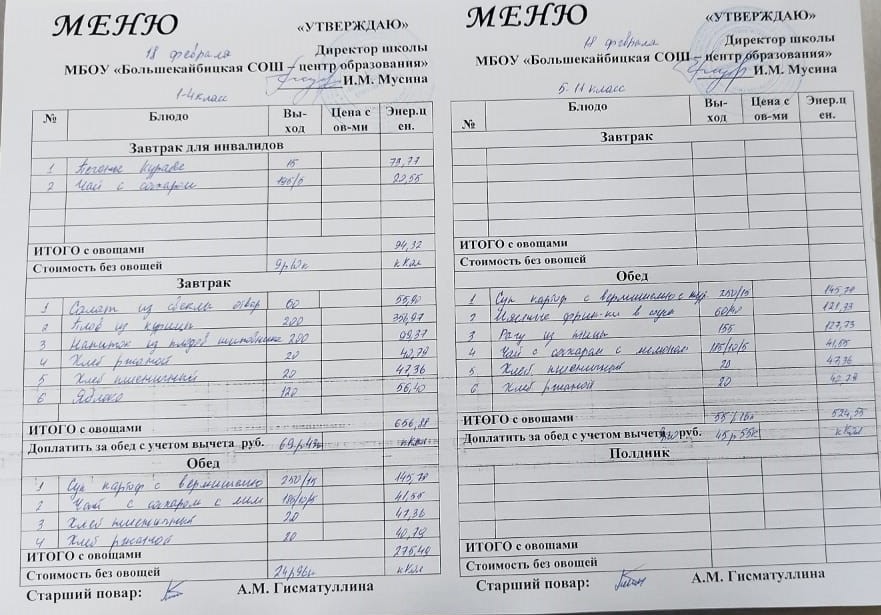 МЕНЮ
«УТВЕРЖДАЮ»
18 февраля
Директор школы
МБОУ «Большекайбицкая СОШ – центр образования»
И.М. Мусина
1-4 класс
№ Блюдо Вы-ход Цена с ов-ми Энер.ц ен.
Завтрак для инвалидов
1 15
2 Чай с сахаром 195/5
ИТОГО с овощами 94,32
Стоимость без овощей кКал
Завтрак
1 Салат из свеклы отвар 60
2 Плов из курицы 200
3 Напиток из плодов шиповника 200
4 Хлеб ржаной 20 40,79
5 Хлеб пшеничный 20 47,36
6 Яблоко 120 56,40
ИТОГО с овощами
Доплатить за обед с учетом вычета руб. кКал
Обед
1 Суп картоф с вермишелью 250/15 145,78
2 Чай с сахаром с лим 185/10/5 41,55
3 Хлеб пшеничный 20 47,36
4 Хлеб ржаной 20 40,79
ИТОГО с овощами
Стоимость без овощей 24р96к кКал
Старший повар: А.М. Гисматуллина
МЕНЮ
«УТВЕРЖДАЮ»
18 февраля
Директор школы
МБОУ «Большекайбицкая СОШ – центр образования»
И.М. Мусина
5-11 класс
№ Блюдо Вы-ход Цена с ов-ми Энер.ц ен.
Завтрак
ИТОГО с овощами
Стоимость без овощей
Обед
1 Суп картоф с вермишелью с кур. 250/15 145,78
2 Мясные в соусе
3 Рагу из птицы 155 127,73
4 Чай с сахаром с лимоном 185/10/5 41,55
5 Хлеб пшеничный 20 47,36
6 Хлеб ржаной 20
ИТОГО с овощами 55р16к 524,55
Доплатить за обед с учетом вычета руб. 45р55к кКал
Полдник
Старший повар: А.М. Гисматуллина